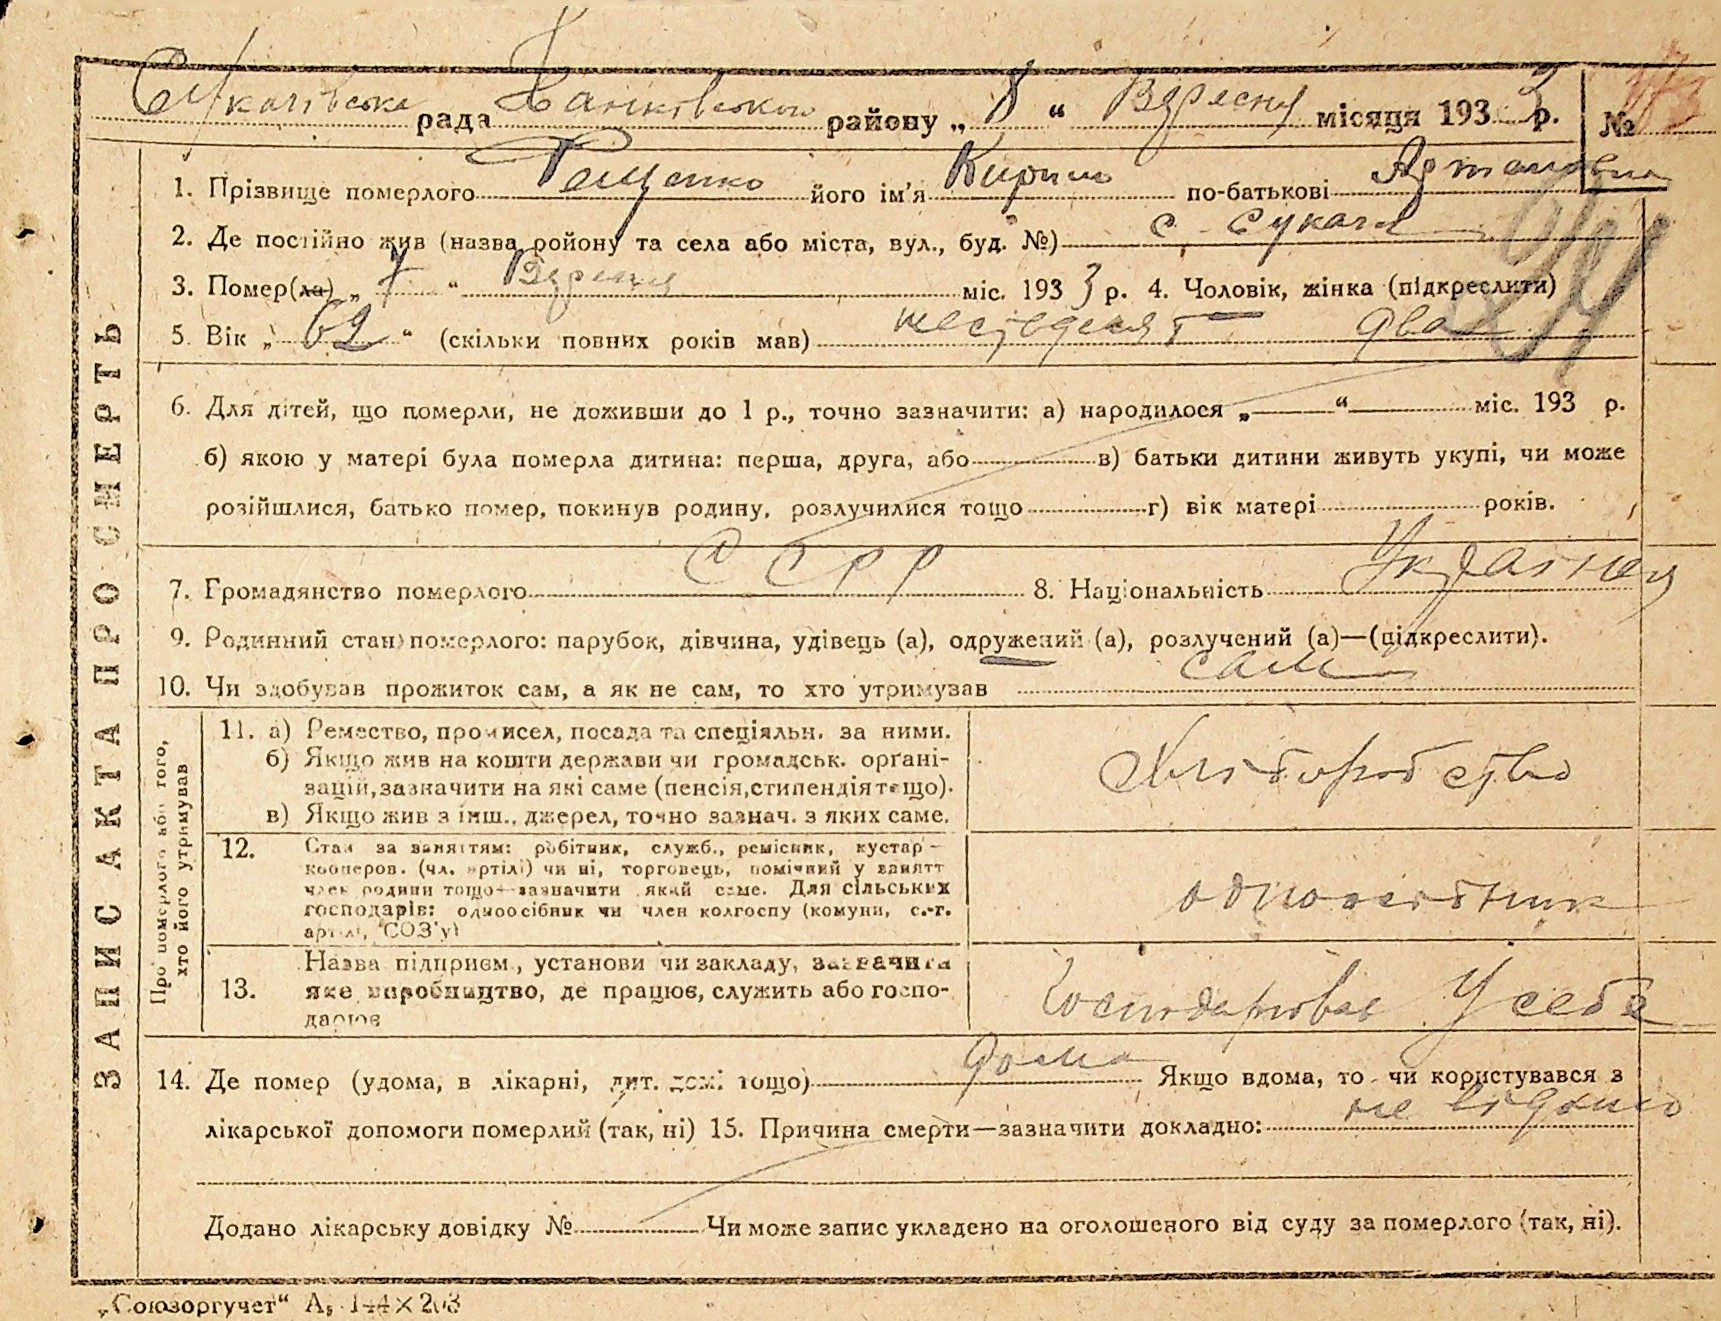 Сукачівська рада Іванківського району „ 8 “ Вересня місяця 1933 р. № 173
1. Прізвище померлого Тещенко його ім'я Кирило по-батькові
2. Де постійно жив (назва ройону та села або міста, вул., буд. №) с. Сукачі
3. Помер(ла) „ 7 “ Вересня міс. 1933 р. 4. Чоловік, жінка (підкреслити)
5. Вік „ 62 “ (скільки повних років мав) шестдесят два
6. Для дітей, що померли, не доживши до 1 р., точно зазначити: а) народилося „ “ міс. 193 р.
б) якою у матері була померла дитина: перша, друга, або в) батьки дитини живуть укупі, чи може
розійшлися, батько помер, покинув родину, розлучилися тощо г) вік матері років.
7. Громадянство померлого ССРР 8. Національність Українец
9. Родинний стан померлого: парубок, дівчина, удівець (а), одружений (а), розлучений (а)—(підкреслити).
10. Чи здобував прожиток сам, а як не сам, то хто утримував сам
ЗАПИС АКТА ПРО СМЕРТЬ
Про померлого або того,
хто його утримував
11. а) Ремество, промисел, посада та спеціяльн. за ними.
б) Якщо жив на кошти держави чи громадськ. орґані-
зацій, зазначити на які саме (пенсія, стипендія тощо).
в) Якщо жив з інш., джерел, точно зазнач. з яких саме.
Хліборобство
12. Стан за заняттям: робітник, служб., ремісник, кустар -
кооперов. (чл. артілі) чи ні, торговець, помічний у занятт
член родини тощо—зазначити який саме. Для сільських
господарів: одноосібник чи член колгоспу (комуни, с.-г.
артілі, СОЗ'у)
одноосібник
13. Назва підприєм., установи чи закладу, зазначити
яке виробництво, де працює, служить або госпо-
дарює
Господарював У себе
14. Де помер (удома, в лікарні, дит. домі тощо) дома Якщо вдома, то чи користувався з
лікарської допомоги померлий (так, ні) 15. Причина смерти—зазначити докладно: не відомо
Додано лікарську довідку № Чи може запис укладено на оголошеного від суду за померлого (так, ні).
„Союзоргучет“ А₅ 144×203